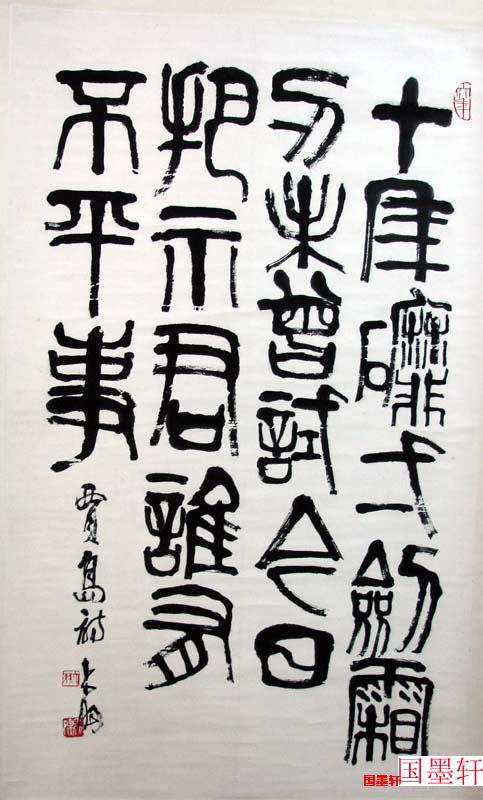 十年磨弌劍霜
刃未曾試今日
把示君誰有
不平事
賈島詩
国墨轩
国墨轩